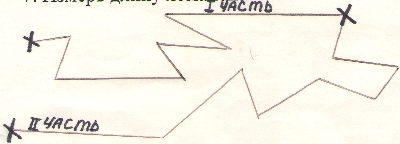 Измерь длину
I ЧАСТЬ
II ЧАСТЬ